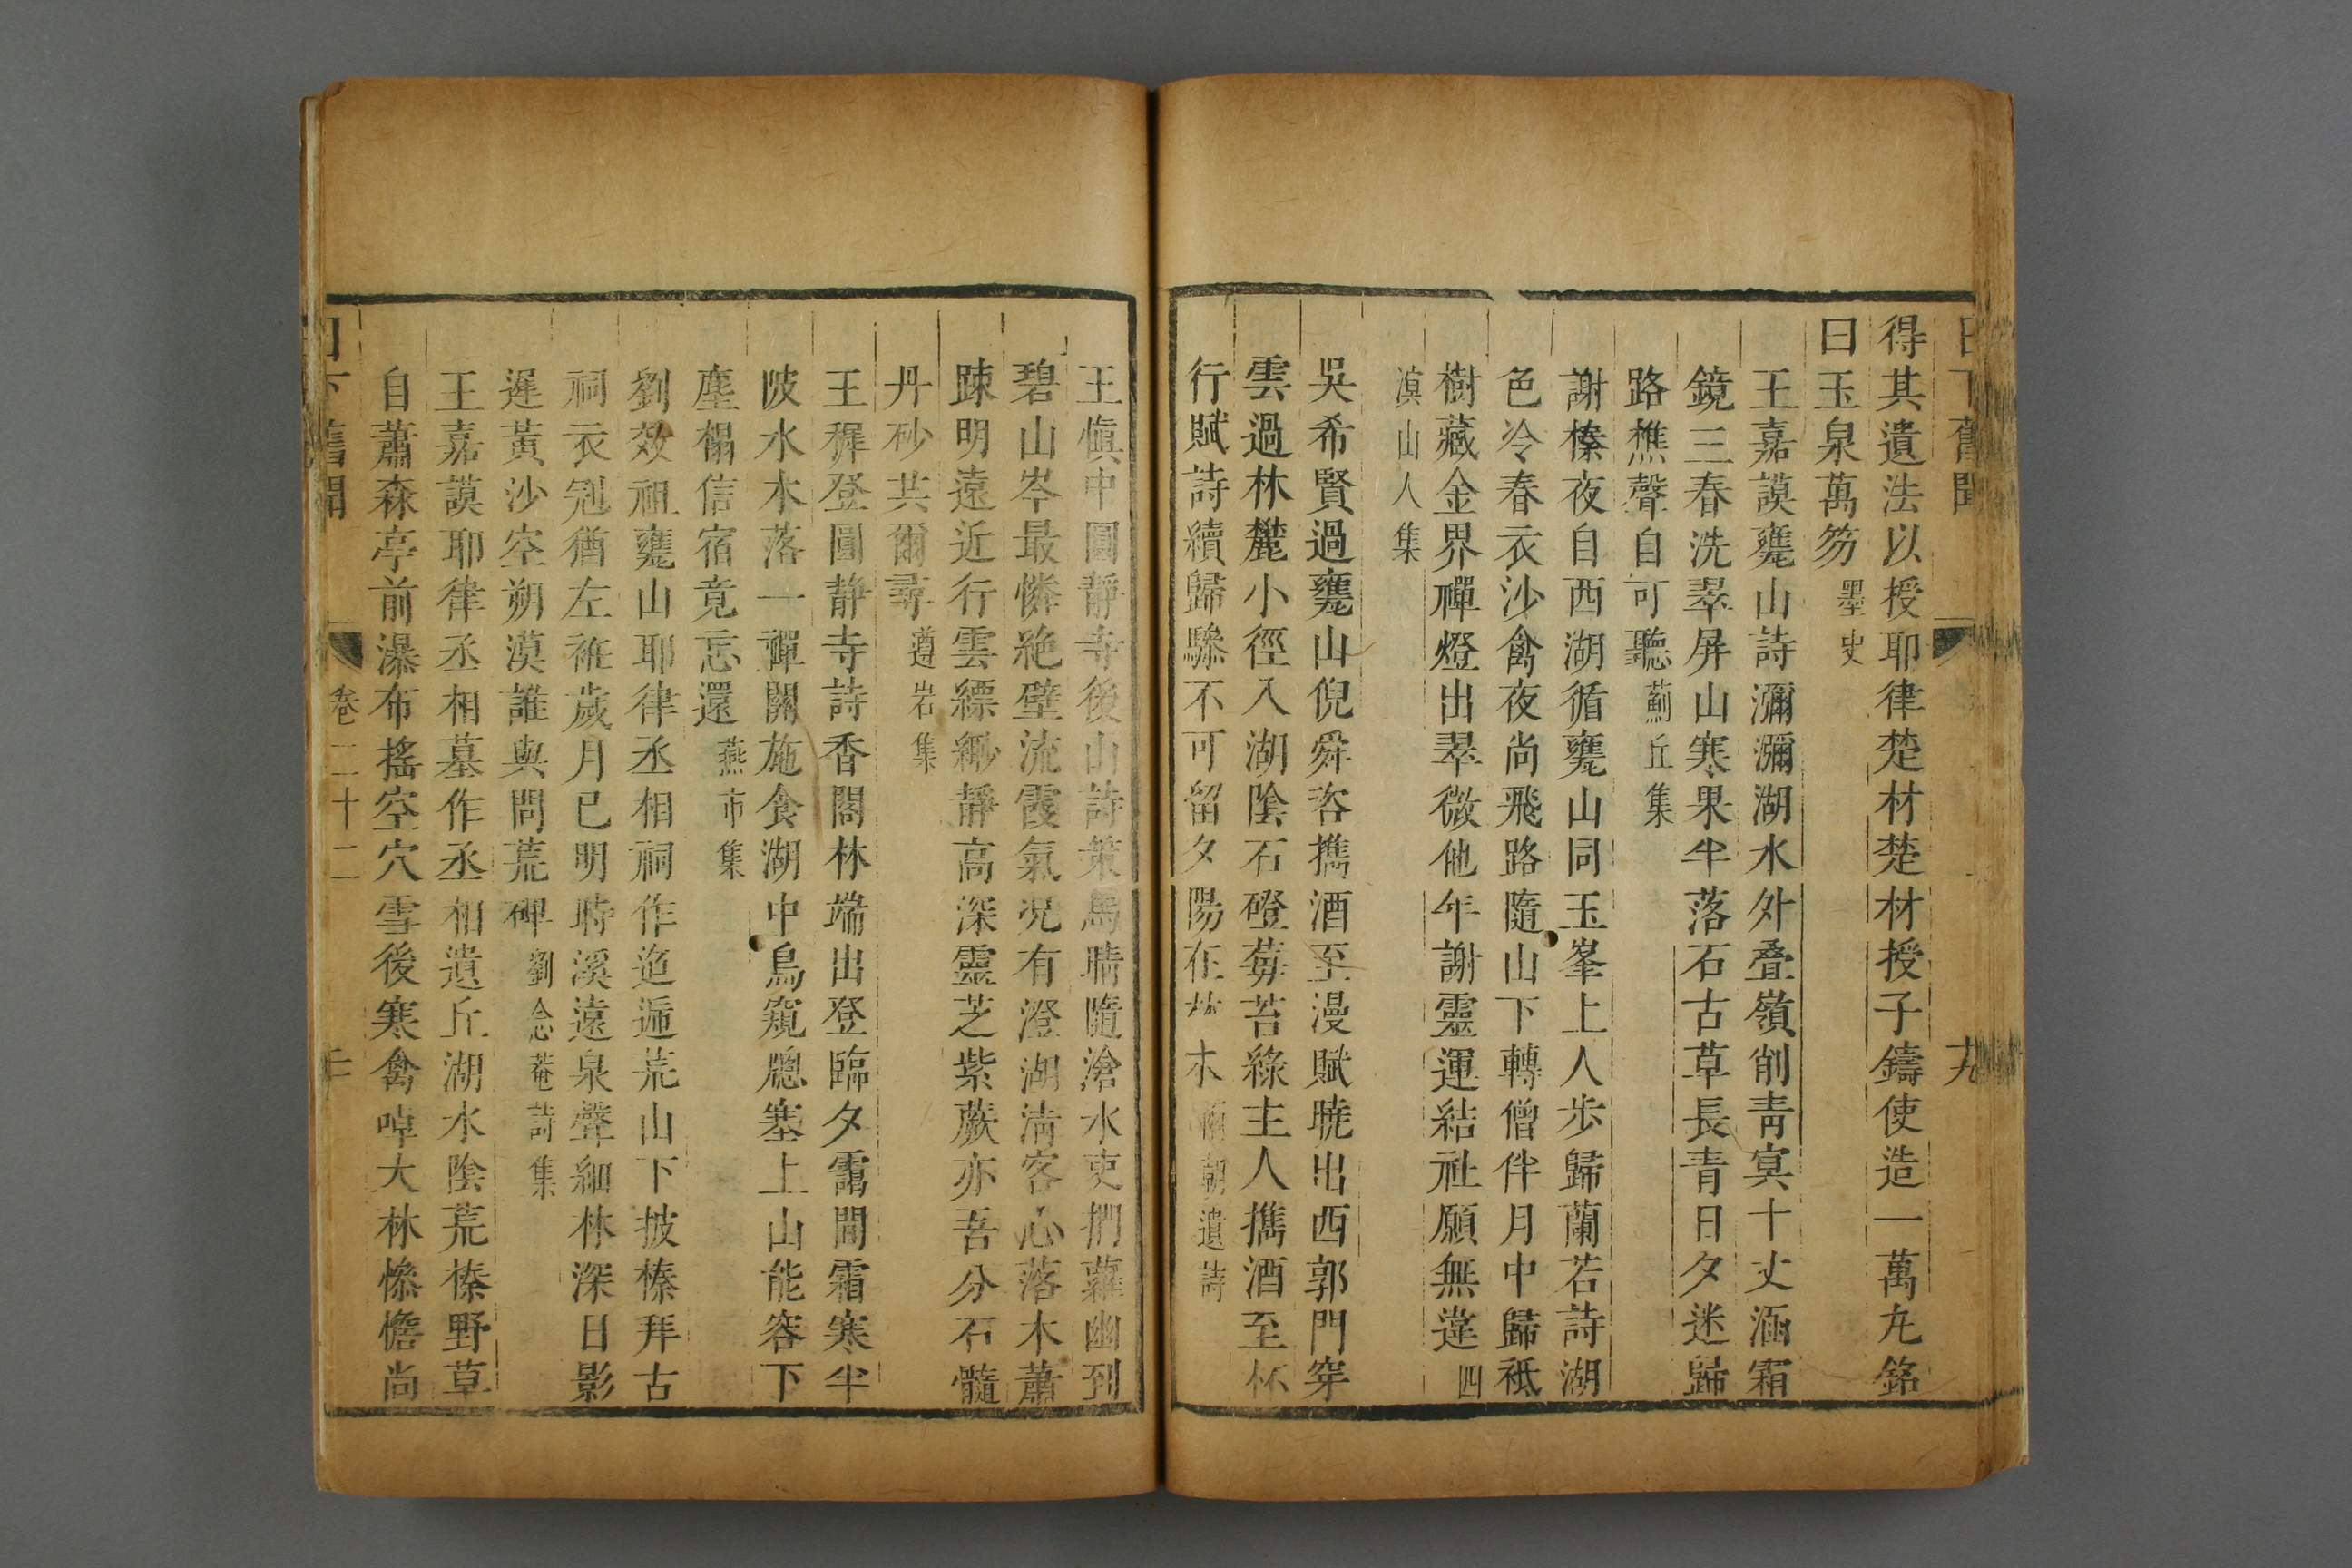 日下舊聞 十九
得其遺法以授耶律楚材楚材授子鑄使造一萬丸銘
曰玉泉萬笏墨史
王嘉謨甕山詩瀰瀰湖水外叠嶺削青冥十丈涵霜
鏡三春洗翠屏山寒果半落石古草長青日夕迷歸
路樵聲自可聽薊丘集
謝榛夜自西湖循甕山同玉峯上人步歸蘭若詩湖
色冷春衣沙禽夜尚飛路隨山下轉僧伴月中歸祗
樹藏金界禪燈出翠微他年謝靈運結社願無違四
溟山人集
吳希賢過甕山倪舜咨攜酒至漫賦曉出西郭門穿
雲過林麓小徑入湖陰石磴莓苔綠主人攜酒至杯
行賦詩續歸驂不可留夕陽在林木兩朝遺詩
王慎中圓靜寺後山詩策馬晴隨滄水吏捫蘿幽到
碧山岑最憐絶壁流霞氣况有澄湖清客心落木蕭
踈明遠近行雲縹緲靜高深靈芝紫蕨亦吾分石髓
丹砂共爾尋遵岩集
王穉登圓静寺詩香閣林端出登臨夕靄間霜寒半
陂水木落一禪關施食湖中鳥窺䆫塞上山能容下
塵榻信宿竟忘還燕市集
劉效祖甕山耶律丞相祠作迤逦荒山下披榛拜古
祠衣冠猶左袵歲月已明時溪遠泉聲細林深日影
遲黃沙空朔漠誰與問荒碑劉念菴詩集
王嘉謨耶律丞相墓作丞相遺丘湖水陰荒榛野草
自蕭森亭前瀑布搖空穴雪後寒禽啅大林慘憺尚
日下舊聞 卷二十二 二十